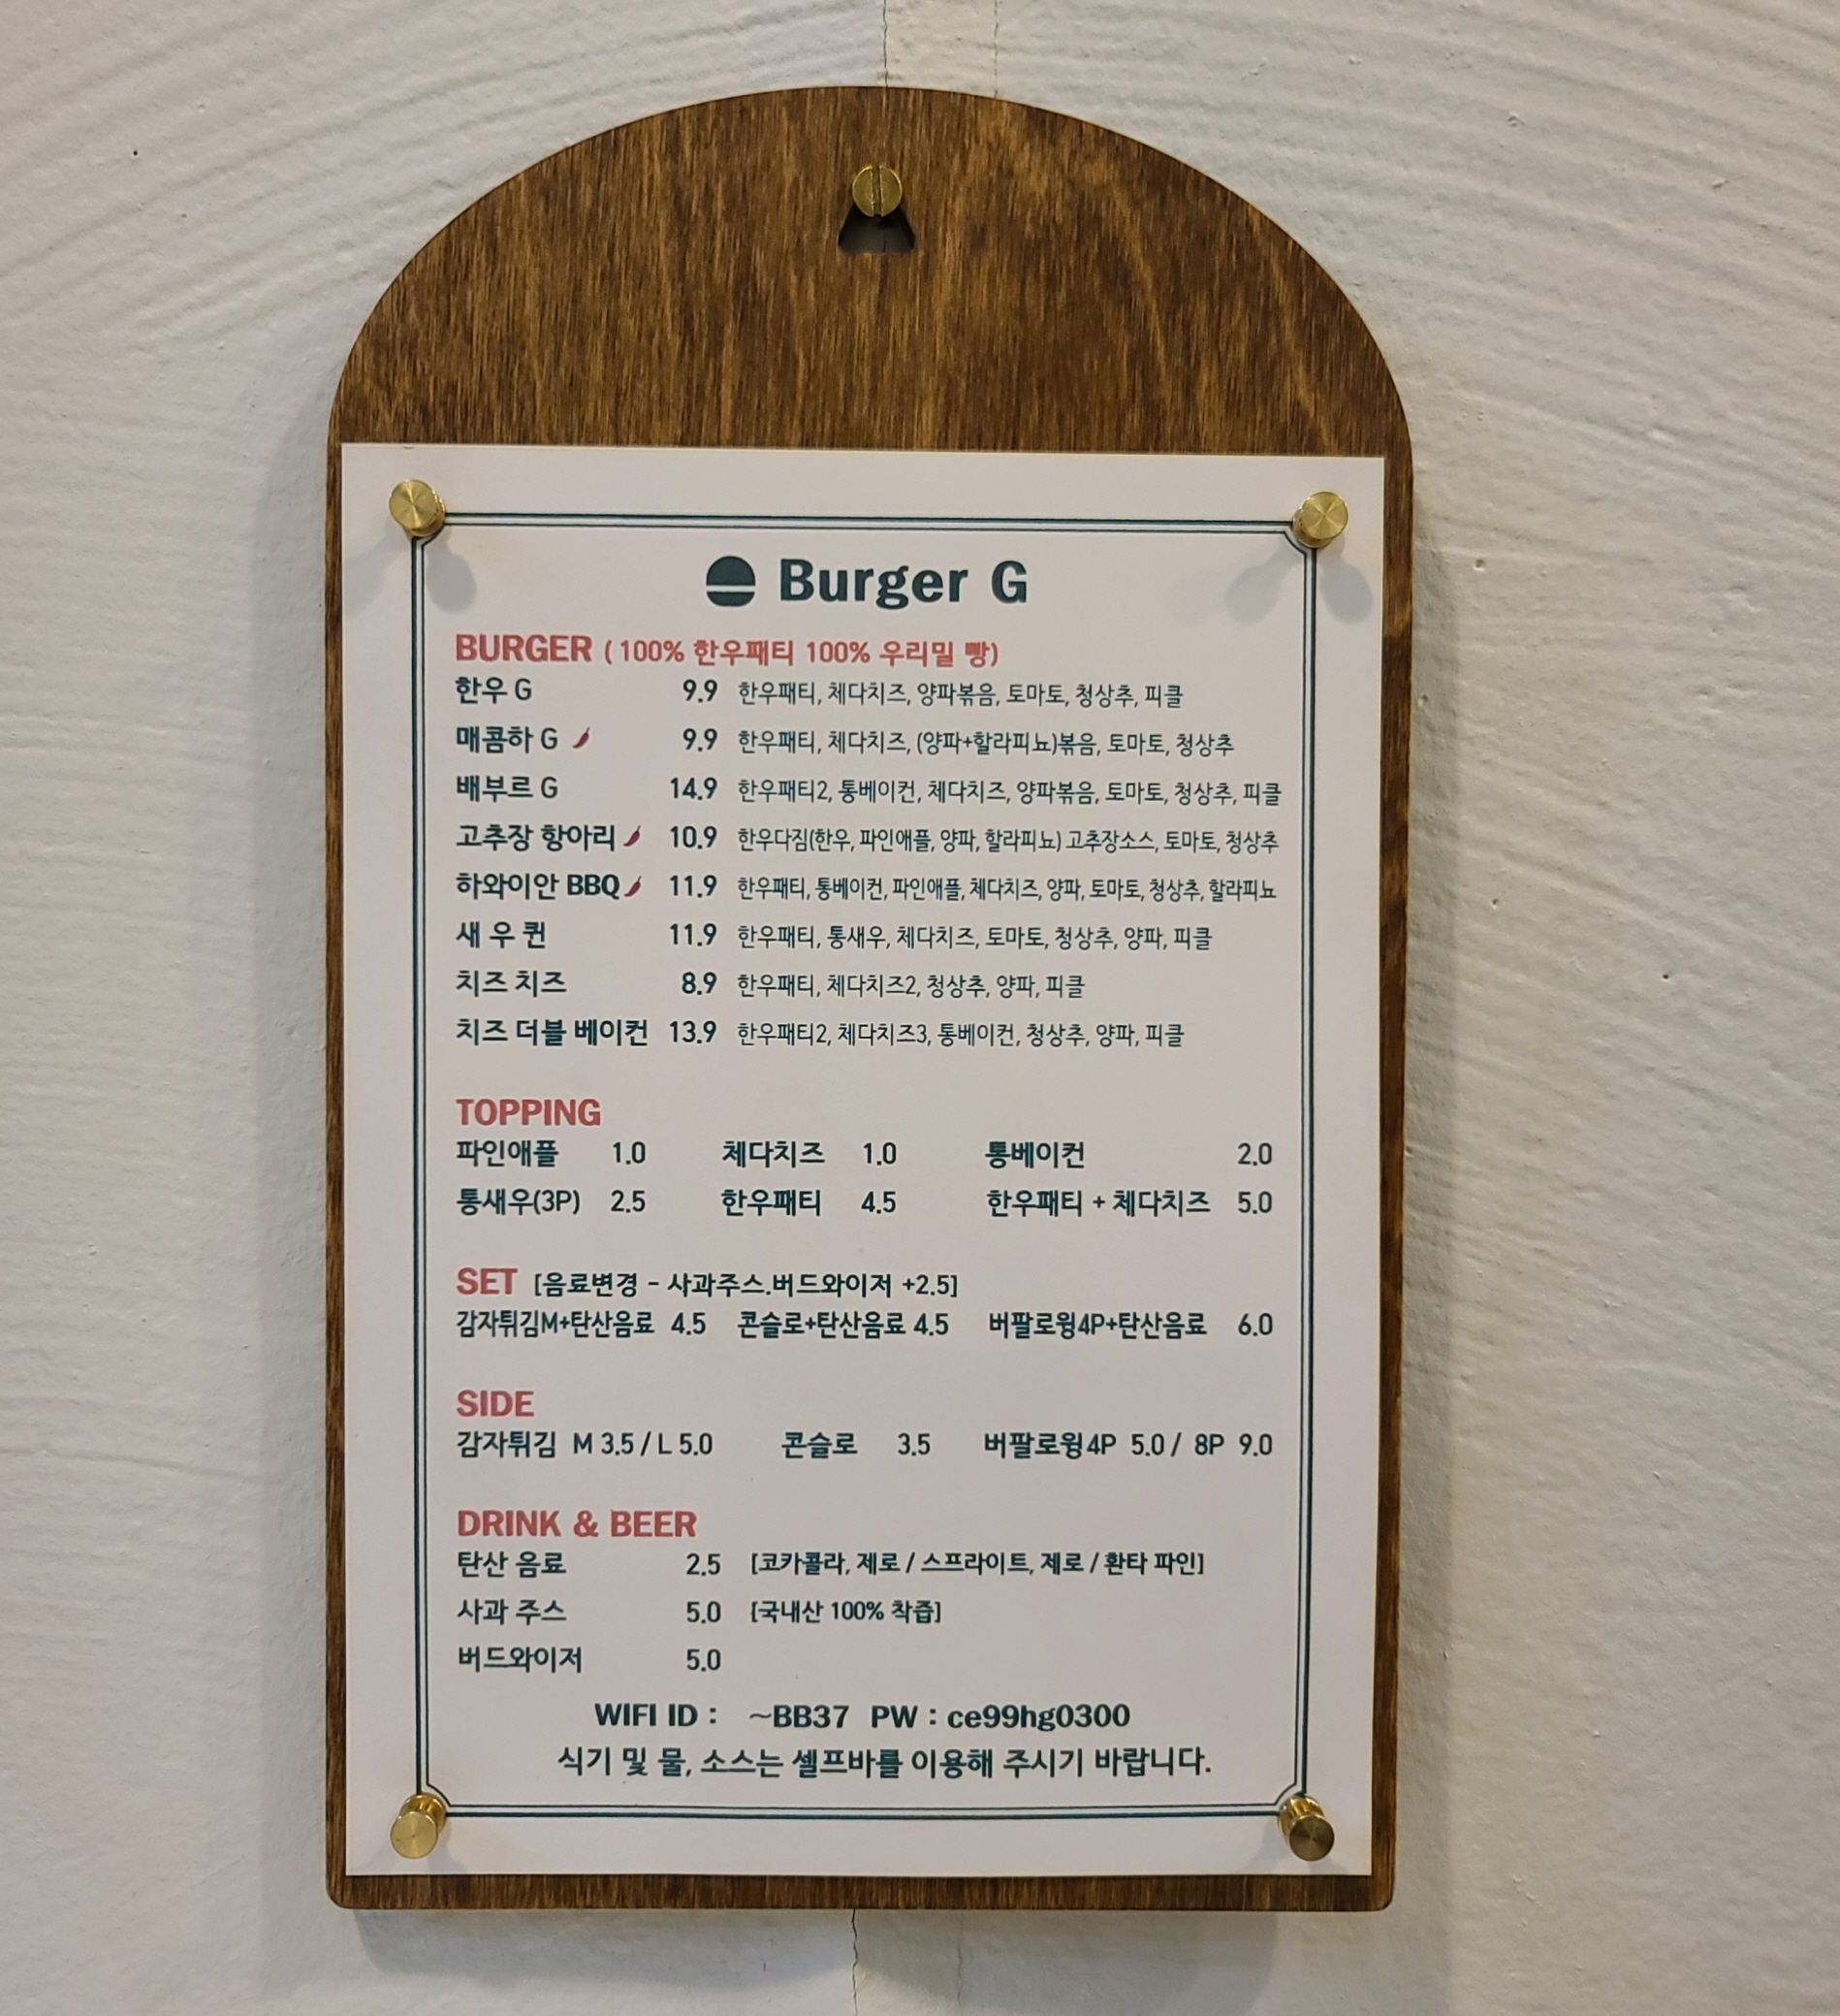 Burger G
BURGER ( 100% 한우패티 100% 우리밀 빵)
한우 G 9.9 한우패티, 체다치즈, 양파볶음, 토마토, 청상추, 피클
매콤하 G 9.9 한우패티, 체다치즈, (양파+할라피뇨)볶음, 토마토, 청상추
배부르 G 14.9 한우패티2, 통베이컨, 체다치즈, 양파볶음, 토마토, 청상추, 피클
고추장 항아리 10.9 한우다짐(한우, 파인애플, 양파, 할라피뇨) 고추장소스, 토마토, 청상추
하와이안 BBQ 11.9 한우패티, 통베이컨, 파인애플, 체다치즈, 양파, 토마토, 청상추, 할라피뇨
새 우 퀸 11.9 한우패티, 통새우, 체다치즈, 토마토, 청상추, 양파, 피클
치즈 치즈 8.9 한우패티, 체다치즈2, 청상추, 양파, 피클
치즈 더블 베이컨 13.9 한우패티2, 체다치즈3, 통베이컨, 청상추, 양파, 피클
TOPPING
파인애플 1.0 체다치즈 1.0 통베이컨 2.0
통새우(3P) 2.5 한우패티 4.5 한우패티 + 체다치즈 5.0
SET [음료변경 - 사과주스.버드와이저 +2.5]
감자튀김M+탄산음료 4.5 콘슬로+탄산음료 4.5 버팔로윙4P+탄산음료 6.0
SIDE
감자튀김 M 3.5 / L 5.0 콘슬로 3.5 버팔로윙4P 5.0 / 8P 9.0
DRINK & BEER
탄산 음료 2.5 [코카콜라, 제로 / 스프라이트, 제로 / 환타 파인]
사과 주스 5.0 [국내산 100% 착즙]
버드와이저 5.0
WIFI ID : ~BB37 PW : ce99hg0300
식기 및 물, 소스는 셀프바를 이용해 주시기 바랍니다.